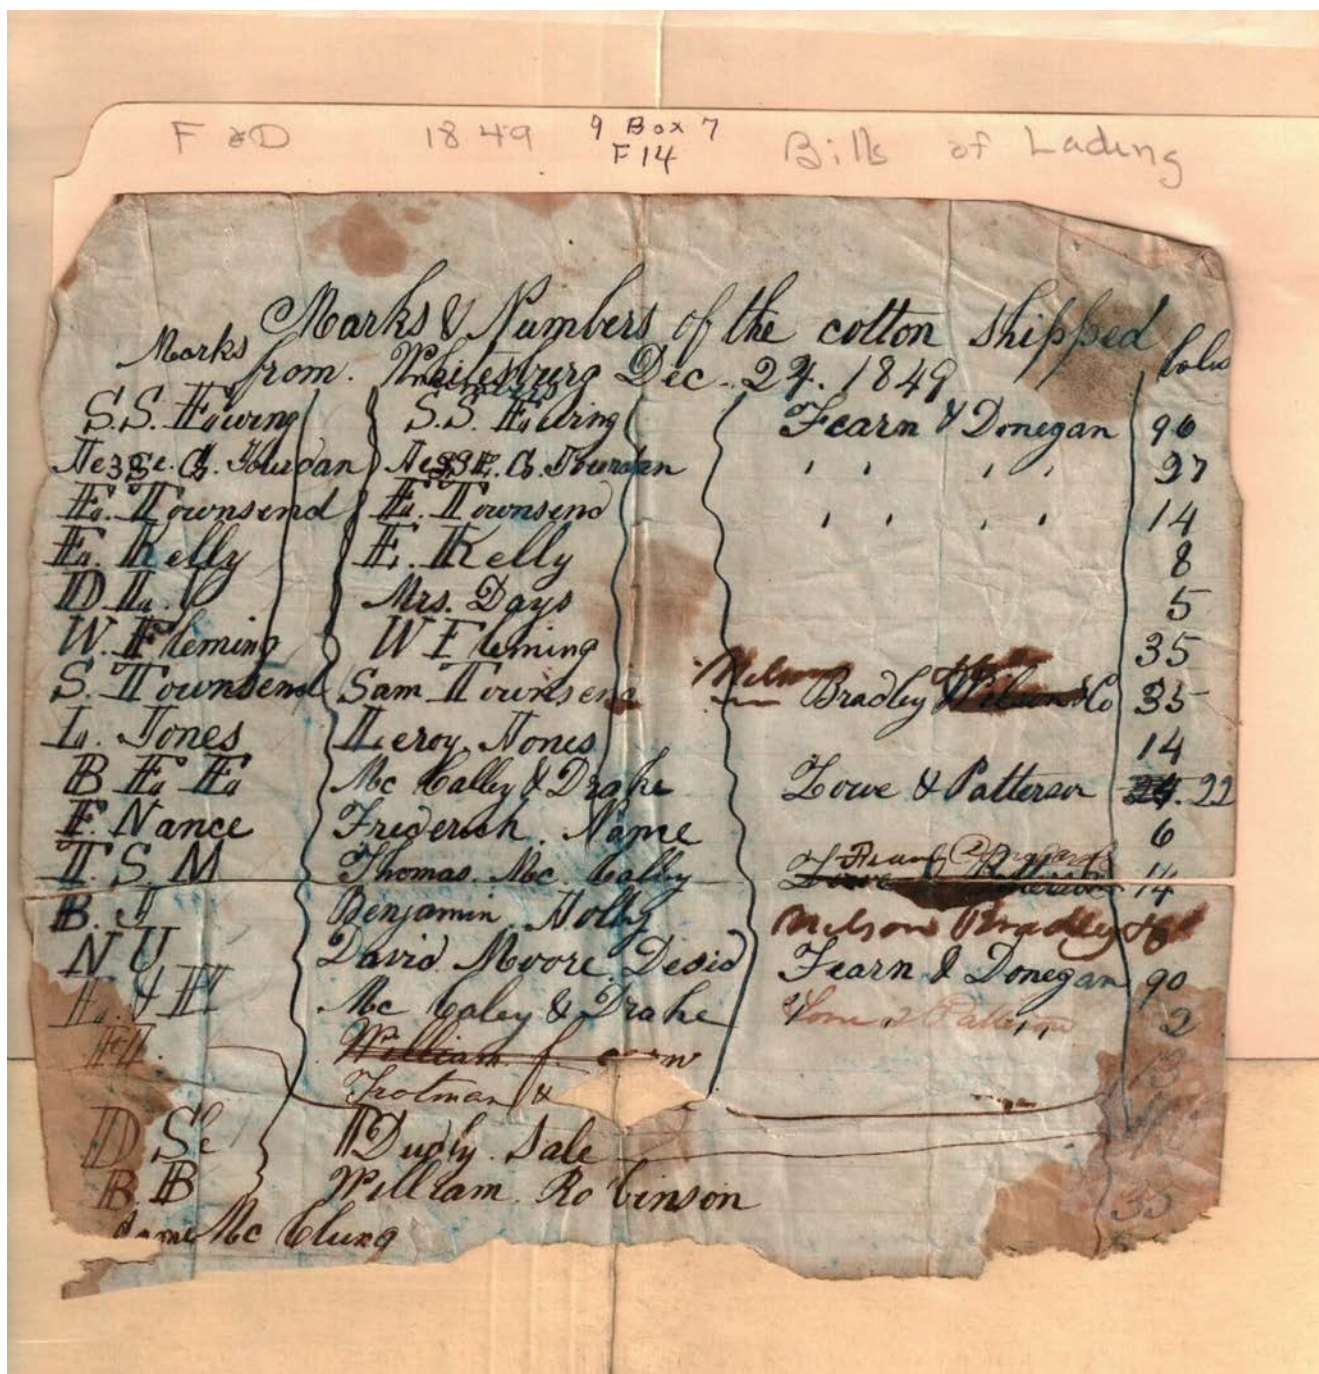 F & D 1849 9 Box 7 Bills of Lading
F 14
Marks & Numbers of the cotton shipped
Marks from. Whitesburg Dec. 24. 1849
S.S. Ewing S.S. Ewing Fearn & Donegan 96
" " " " 27
E. Townsend E. Townsend " " " " 14
E. Kelly E. Kelly 8
D E. Mrs. Days 5
W. Fleming W Fleming 35
S. Townsend Sam Townsend Nelson Bradley & Co 35
L. Jones Leroy Jones 14
B E E Mc Calley & Drake Lowe & Patterson 24. 22
F. Nance Frederick. Name 6
T. S M Thomas. Mc. Calley Lowe & Patterson 14
B. J Benjamin. Jolly Nelson Bradley &
N U David Moore. Desid Fearn & Donegan 90
Mc Caley & Drake Lowe & Patterson 2
William f. 13
Trotman &
D Se Dudly. Sale
B. B William. Robinson 35
Mc Clung